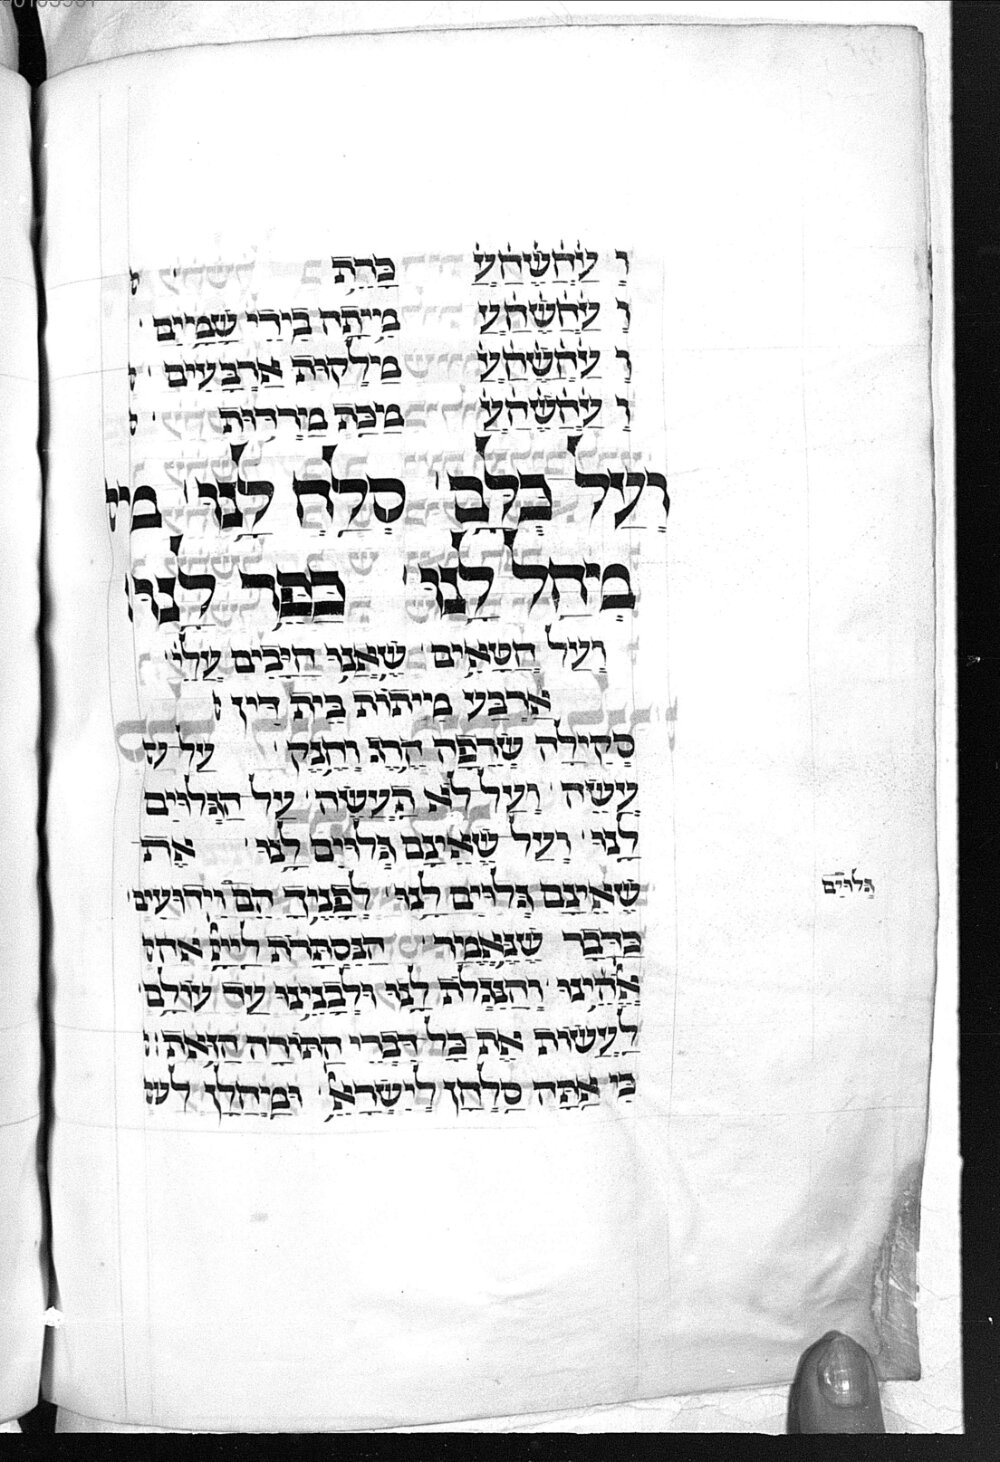 וֹ עֹחֹשֹחֹעֹ כָּרֵת
וֹ עֹחֹשֹחֹעֹ מִיתָה בִּידֵי שָׁמַיִם
וֹ עֹחֹשֹחֹעֹ מַלְקוּת אַרְבָּעִים
וֹ עֹחֹשֹחֹעֹ מַכַּת מַרְדּוּת
וְעַל כֻּלָּם סְלַח לָנוּ מ
מְחַל לָנוּ כַּפֶּר לָנוּ
וְעַל חֲטָאִים שֶׁאָנוּ חַיָּבִים עֲלֵי
אַרְבַּע מִיתוֹת בֵּית דִּין
סְקִילָה שְׂרֵפָה הֶרֶג וְחֶנֶק עַל
עֲשֵׂה וְעַל לֹא תַעֲשֶׂה עַל הַגְּלוּיִם
לָנוּ וְעַל שֶׁאֵינָם גְּלוּיִם לָנוּ אֶת
גְּלוּיִם
שֶׁאֵינָם גְּלוּיִם לָנוּ לְפָנֶיךָ הֵם וִידוּעִים
כַּדָּבָר שֶׁנֶּאֱמַר הַנִּסְתָּרֹת לַייָ
אֱלֹהֵינוּ וְהַנִּגְלֹת לָנוּ וּלְבָנֵינוּ עַד עוֹלָם
לַעֲשׂוֹת אֶת כָּל דִּבְרֵי הַתּוֹרָה הַזֹּאת
כִּי אַתָּה סָלְחָן לְיִשְׂרָאֵל וּמָחֳלָן לש